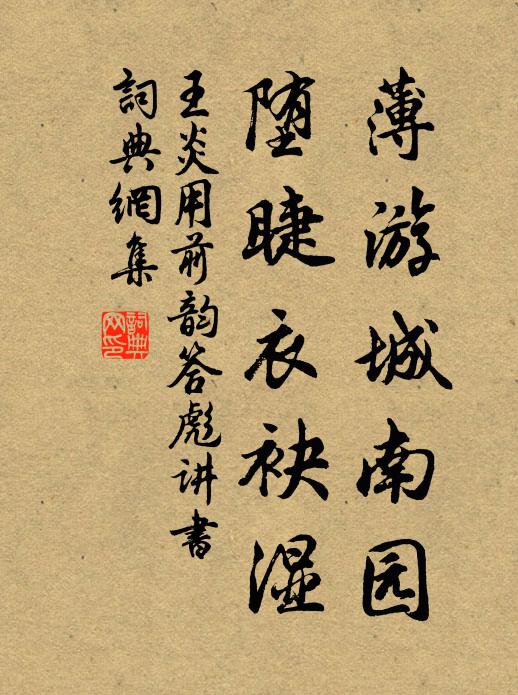 薄游城南园
堕睫衣袂湿
王炎用前韵答彪讲书
詞典網集
詞典
网印